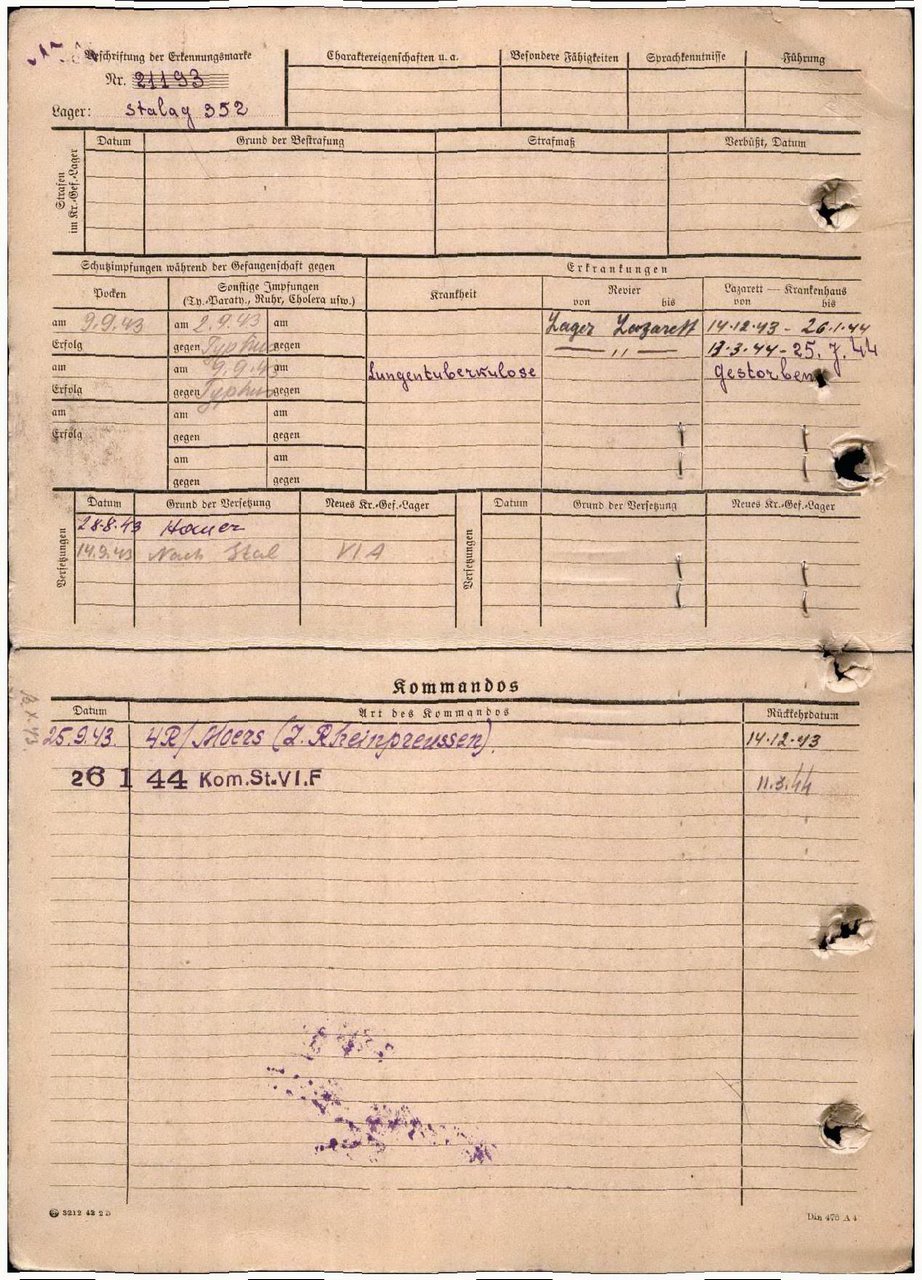 Beschriftung der Erkennungsmarke
Nr. 21193
Lager: Stalag 352
Charaktereigenschaften u. a.
Besondere Fähigkeiten
Sprachkenntnisse
Führung
Strafen im Kr.-Gef.-Lager
Datum
Grund der Bestrafung
Strafmaß
Verbüßt, Datum
Schutzimpfungen während der Gefangenschaft gegen
Erkrankungen
Pocken
Sonstige Impfungen
(Ty.-Paraty., Ruhr, Cholera usw.)
Krankheit
Revier
von bis
Lazarett — Krankenhaus
von bis
am 9.9.43 am 2.9.43 am Lager Lazarett 14.12.43 - 26.1.44
Erfolg gegen Typhus gegen — " — 13.3.44 - 25.7.44
am am 9.9.43 am Lungentuberkulose gestorben
Erfolg gegen Typhus gegen
am am am
Erfolg gegen gegen
am am
gegen gegen
Versetzungen
Datum Grund der Versetzung Neues Kr.-Gef.-Lager
28.8.43 Hauer
14.9.43 Nach Stal VI A
Versetzungen
Datum Grund der Versetzung Neues Kr.-Gef.-Lager
Kommandos
Datum Art des Kommandos Rückkehrdatum
25.9.43. 4R/Moers (Z. Rheinpreussen). 14.12.43
26 1 44 Kom.St.VI.F 11.3.44
3212 42 2 D
Din 476 A 4